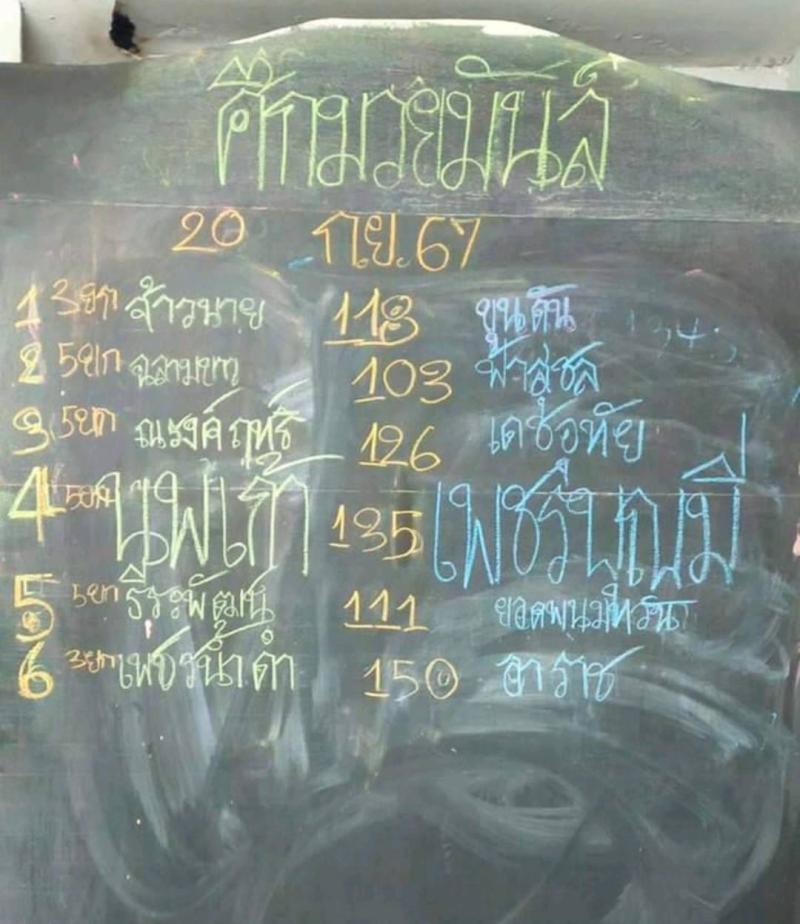 ศึกมวยมันส์
20 ก.ย. 67
1 3ยก จ้าวนาย 118 ขุนตัน
2 5ยก ฉลามขาว 103 ฟ้าสุชล
3 5ยก ณรงค์ฤทธิ์ 126 เดช อุทัย
4 5ยก นพเก้า 135 เพชรบุญมี
5 5ยก ธีระพัฒน์ 111 ยอดพนมทวน
6 3ยก เพชรน้ำดำ 150 อาราช